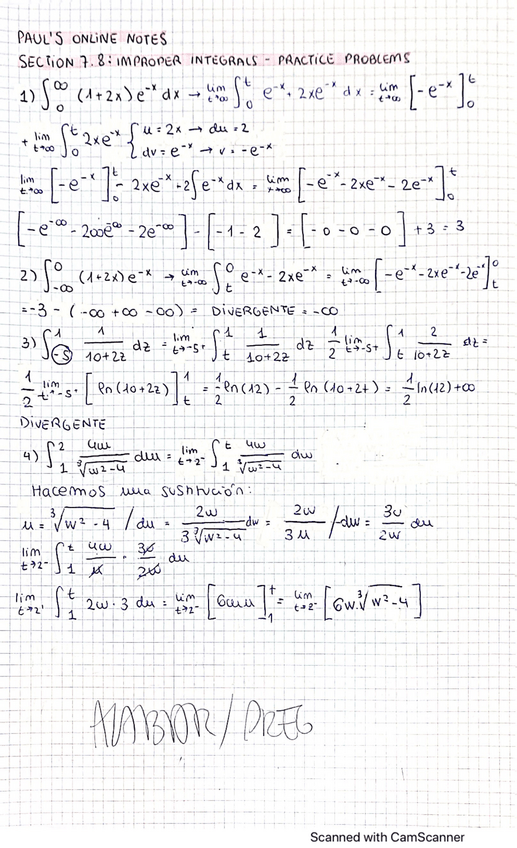 PAUL'S ONLINE NOTES
SECTION 7.8: IMPROPER INTEGRALS - PRACTICE PROBLEMS
1) ∫₀^∞ (1+2x) e^-x dx → lim t→∞ ∫₀^t e^-x + 2xe^-x dx = lim t→∞ [-e^-x]₀^t
+ lim t→∞ ∫₀^t 2xe^-x { u = 2x → du = 2
dv = e^-x → v = -e^-x
lim t→∞ [-e^-x]₀^t - 2xe^-x + 2∫e^-x dx = lim x→∞ [-e^-x - 2xe^-x - 2e^-x]₀^t
[-e^-∞ - 2∞e^-∞ - 2e^-∞] - [-1 - 2] = [-0 - 0 - 0] + 3 = 3
2) ∫_-∞^0 (1+2x) e^-x → lim t→-∞ ∫_t^0 e^-x - 2xe^-x = lim t→-∞ [-e^-x - 2xe^-x - 2e^-x]_t^0
= -3 - (-∞ + ∞ - ∞) = DIVERGENTE = -∞
3) ∫_-5^1 1/(10+2z) dz = lim t→-5+ ∫_t^1 1/(10+2z) dz 1/2 lim t→-5+ ∫_t^1 2/(10+2z) dz =
1/2 lim t→-5+ [ln(10+2z)]_t^1 = 1/2 ln(12) - 1/2 ln(10+2t) = 1/2 ln(12) + ∞
DIVERGENTE
4) ∫₁² 4w/∛(w²-4) dw = lim t→2- ∫₁^t 4w/∛(w²-4) dw
Hacemos una sustitución:
u = ∛(w²-4) / du = 2w/(3∛(w²-4)) dw = 2w/(3u) / dw = 3u/(2w) du
lim t→2- ∫₁^t 4w/u · 3u/2w du
lim t→2- ∫₁^t 2w·3 du = lim t→2- [6wu]₁^t = lim t→2- [6w·∛(w²-4)]
Scanned with CamScanner